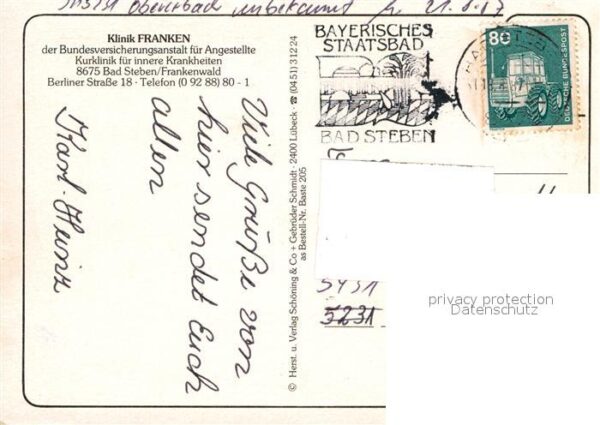 unbekannt
Klinik FRANKEN
der Bundesversicherungsanstalt für Angestellte
Kurklinik für innere Krankheiten
8675 Bad Steben/Frankenwald
Berliner Straße 18 · Telefon (0 92 88) 80 - 1
BAYERISCHES
STAATSBAD
BAD STEBEN
80
DEUTSCHE BUNDESPOST
Viele Grüße von
hier sendet Euch
allen
Karl-Heinz
© Herst. u. Verlag Schöning & Co + Gebrüder Schmidt · 2400 Lübeck · ☎ (0451) 31224
as Bestell-Nr. Baste 205
5431
5231
privacy protection
Datenschutz